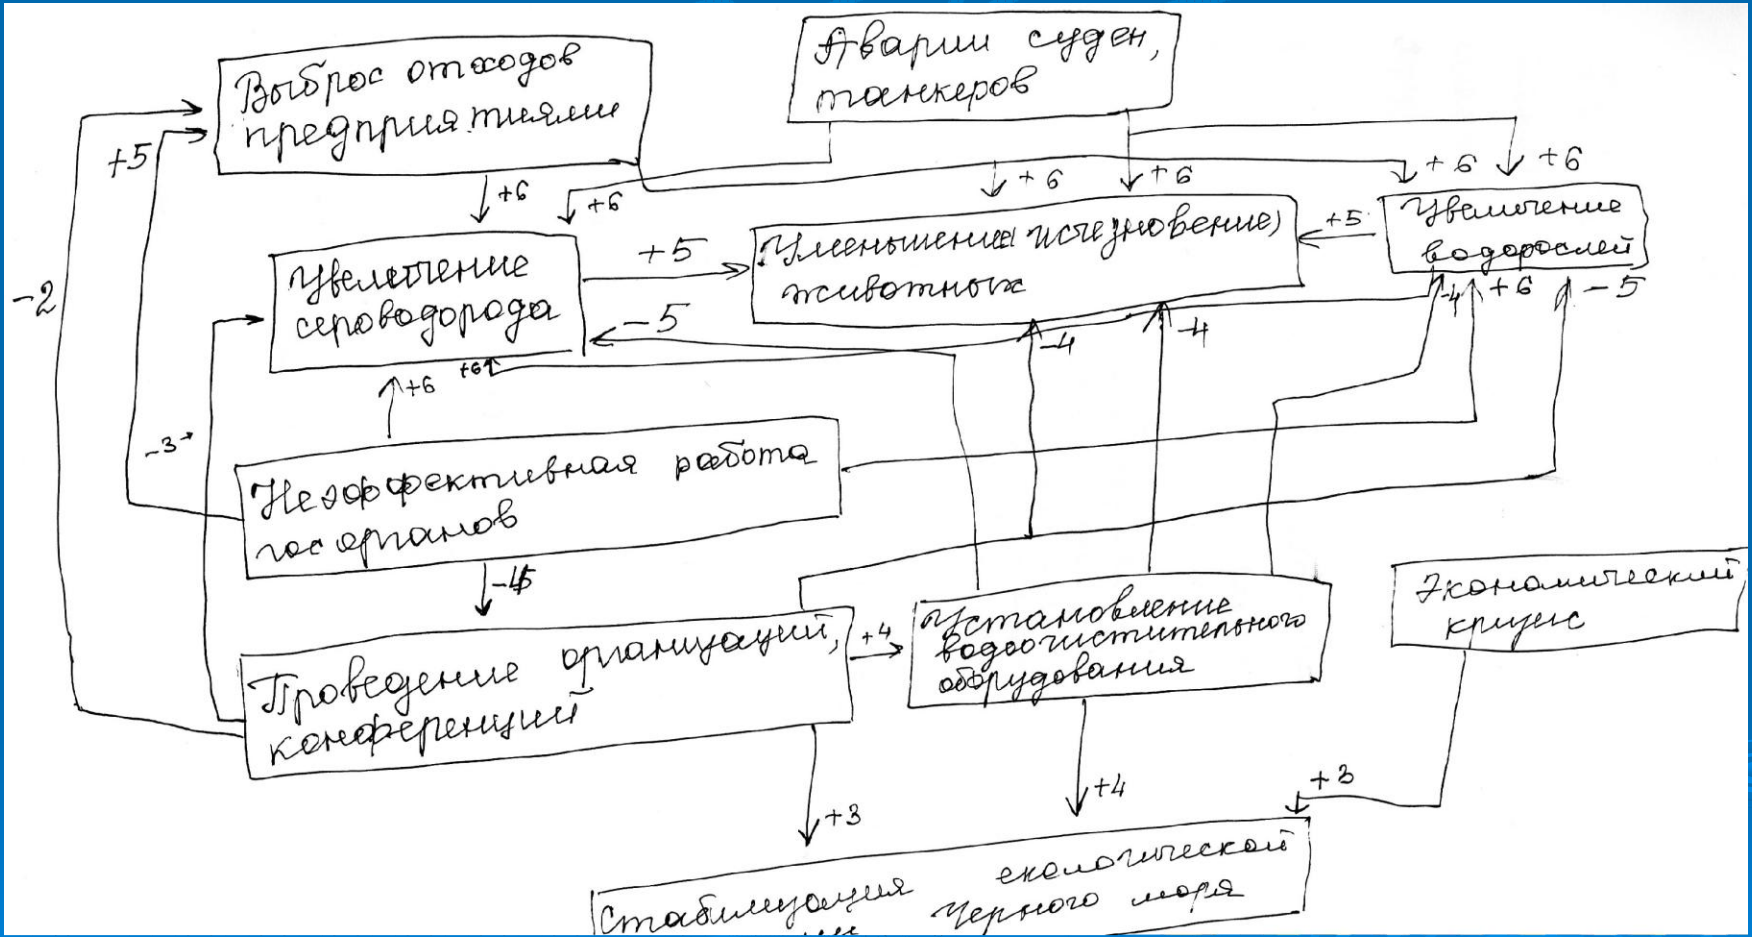 Выброс отходов
предприятиями
Аварии суден,
танкеров
+5
+6
+6
+6
+6
+6
+6
Увеличение
сероводорода
+5
Уменьшение(исчезновение)
животных
+5
Увеличение
водорослей
-2
-5
-4
-4
-4
+6
-5
+6
+6
-3
Неэффективная работа
госорганов
Проведение организаций,
конференций
+4
Установление
водоочистительного
оборудования
Экономический
кризис
+3
+4
+3
Стабилизация екологической
Черного моря